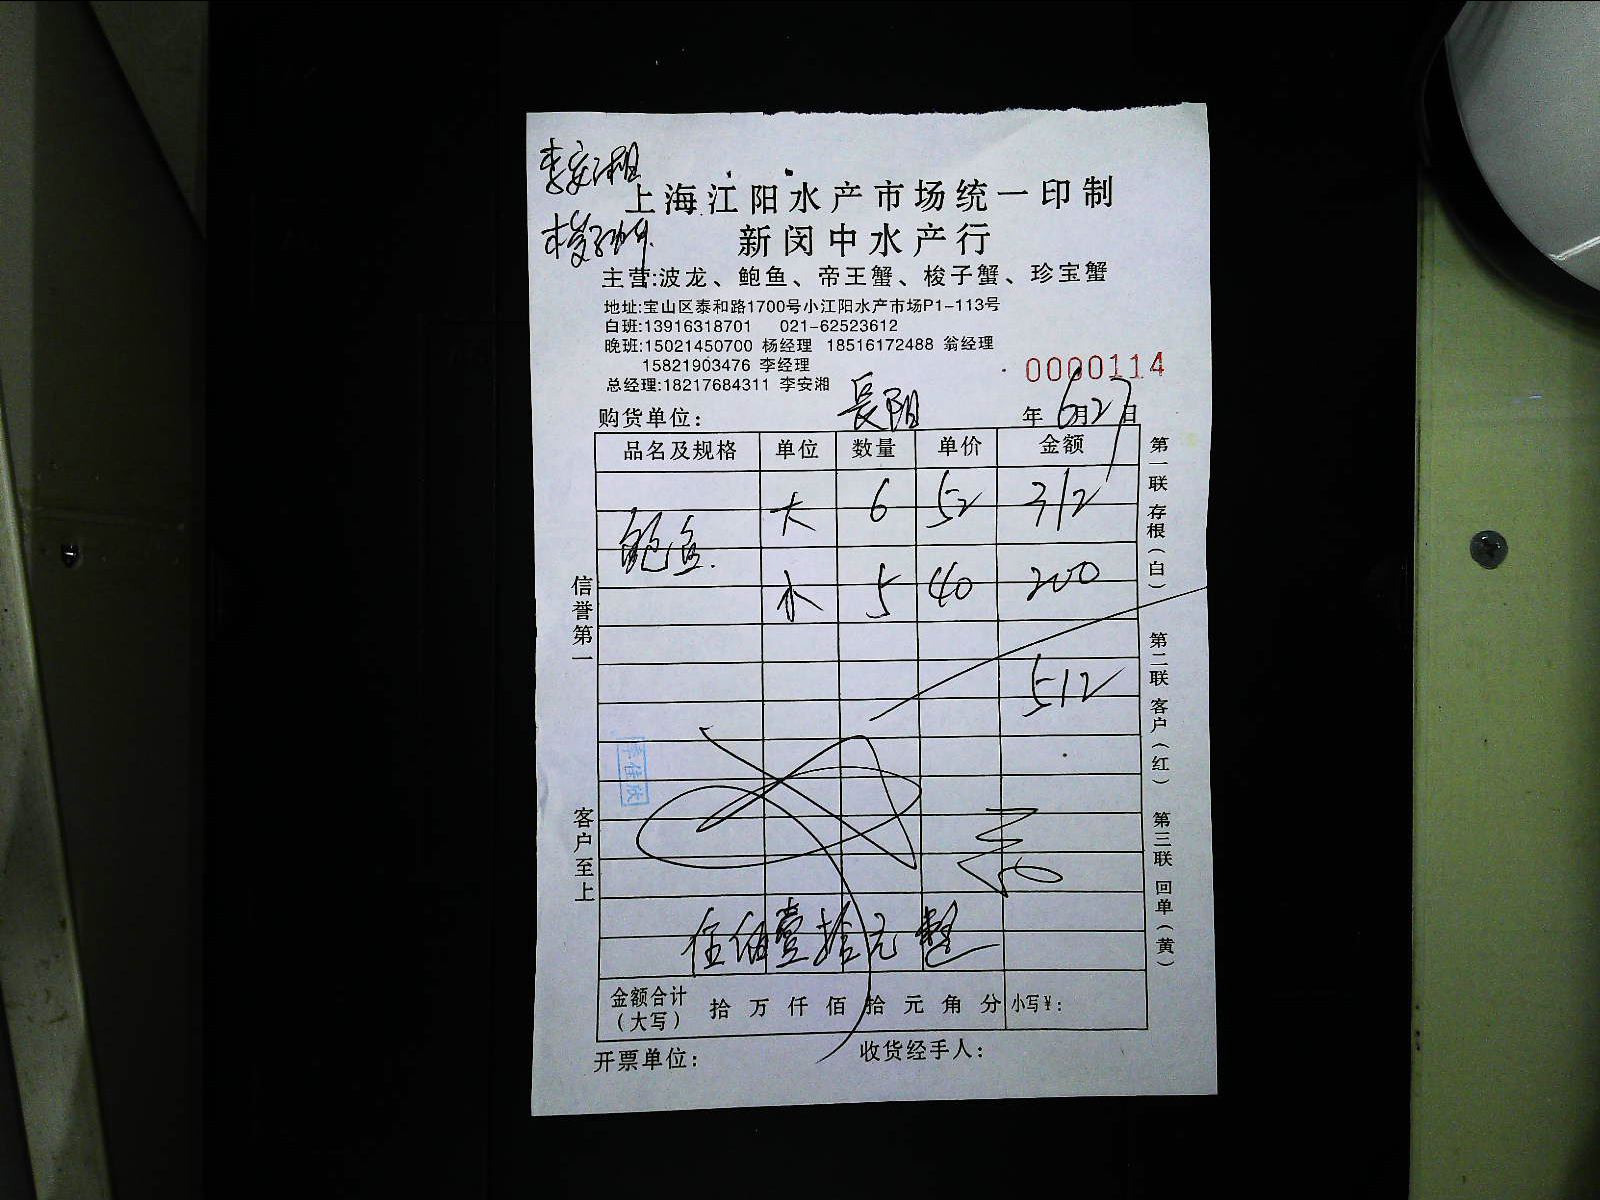 李安湘
上海江阳水产市场统一印制
梭子蟹
新闵中水产行
主营:波龙、鲍鱼、帝王蟹、梭子蟹、珍宝蟹
地址:宝山区泰和路1700号小江阳水产市场P1-113号
白班:13916318701 021-62523612
晚班:15021450700 杨经理 18516172488 翁经理
15821903476 李经理
0000114
总经理:18217684311 李安湘
购货单位: 長阳 年 6月27日
品名及规格 单位 数量 单价 金额
大 6 52 312
鲍鱼
小 5 40 200
512
伍佰壹拾元整
金额合计(大写) 拾 万 仟 佰 拾 元 角 分 小写¥:
开票单位: 收货经手人:
信誉第一
客户至上
第一联 存根(白)
第二联 客户(红)
第三联 回单(黄)